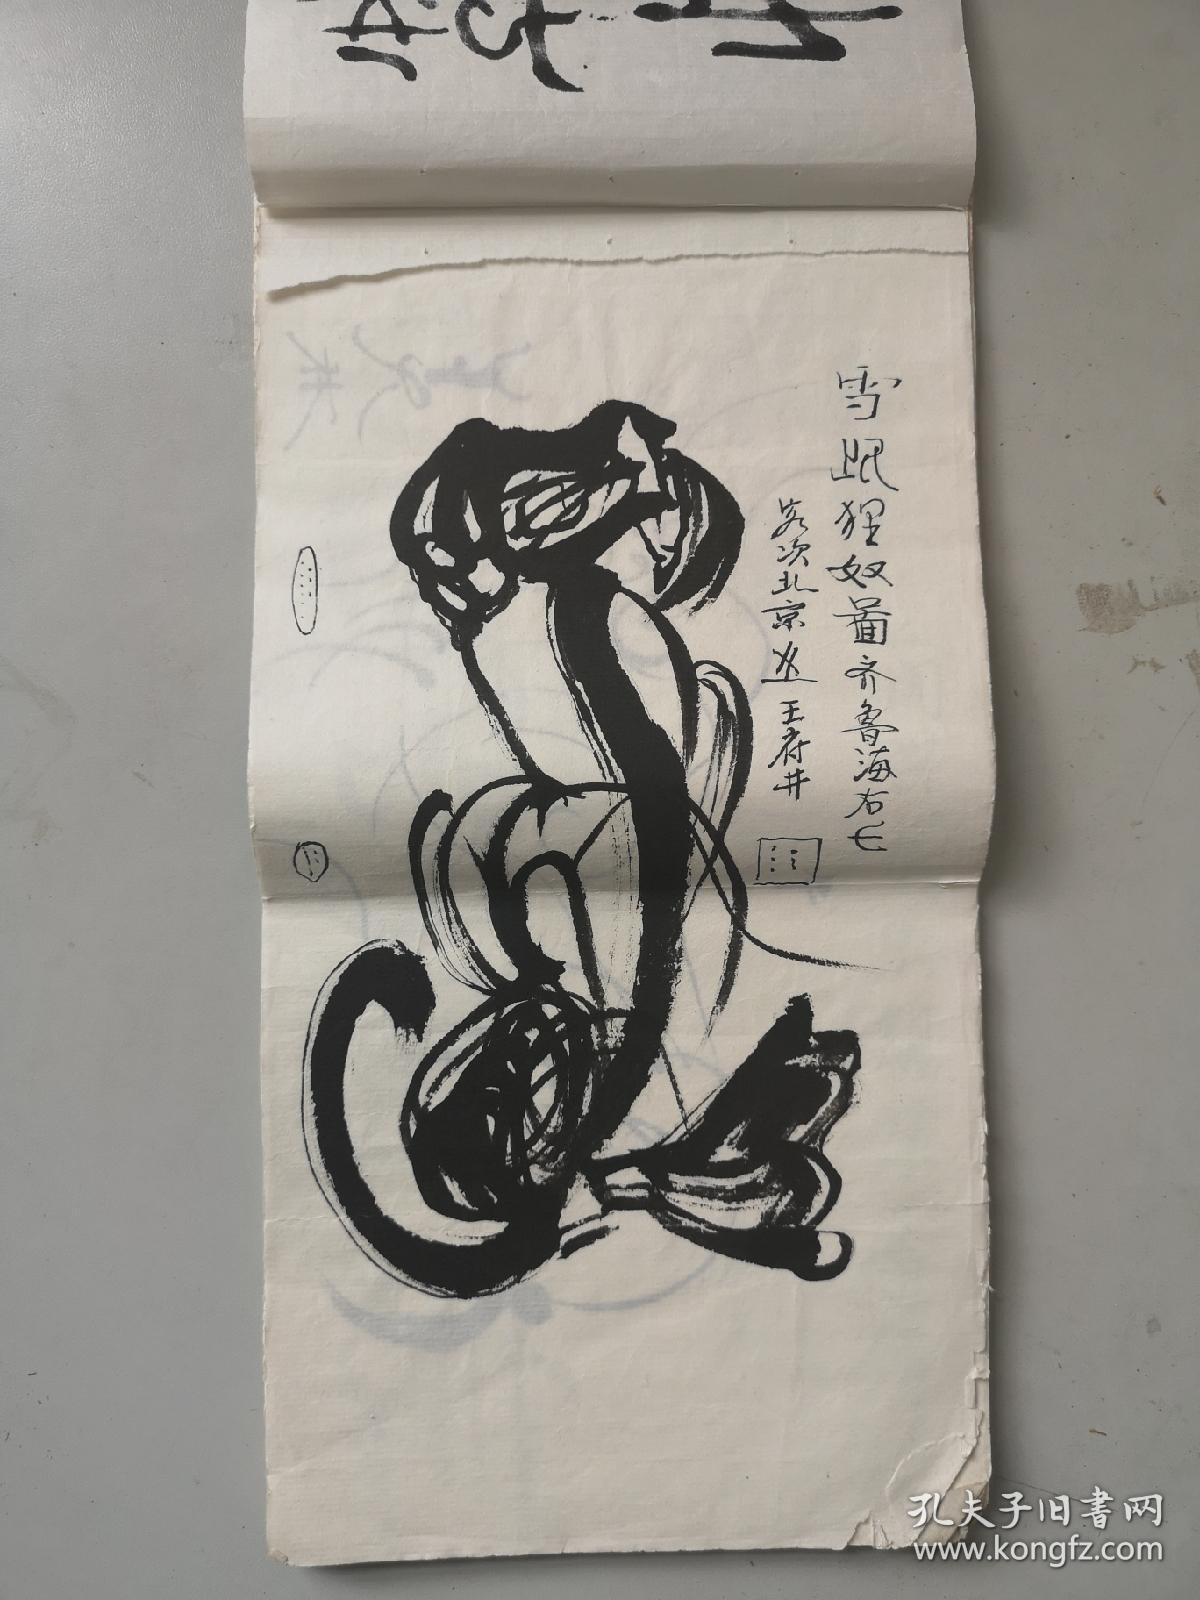 雪跟狸奴啚齐鲁海右七
客次北京 王府井
孔夫子旧书网
www.kongfz.com